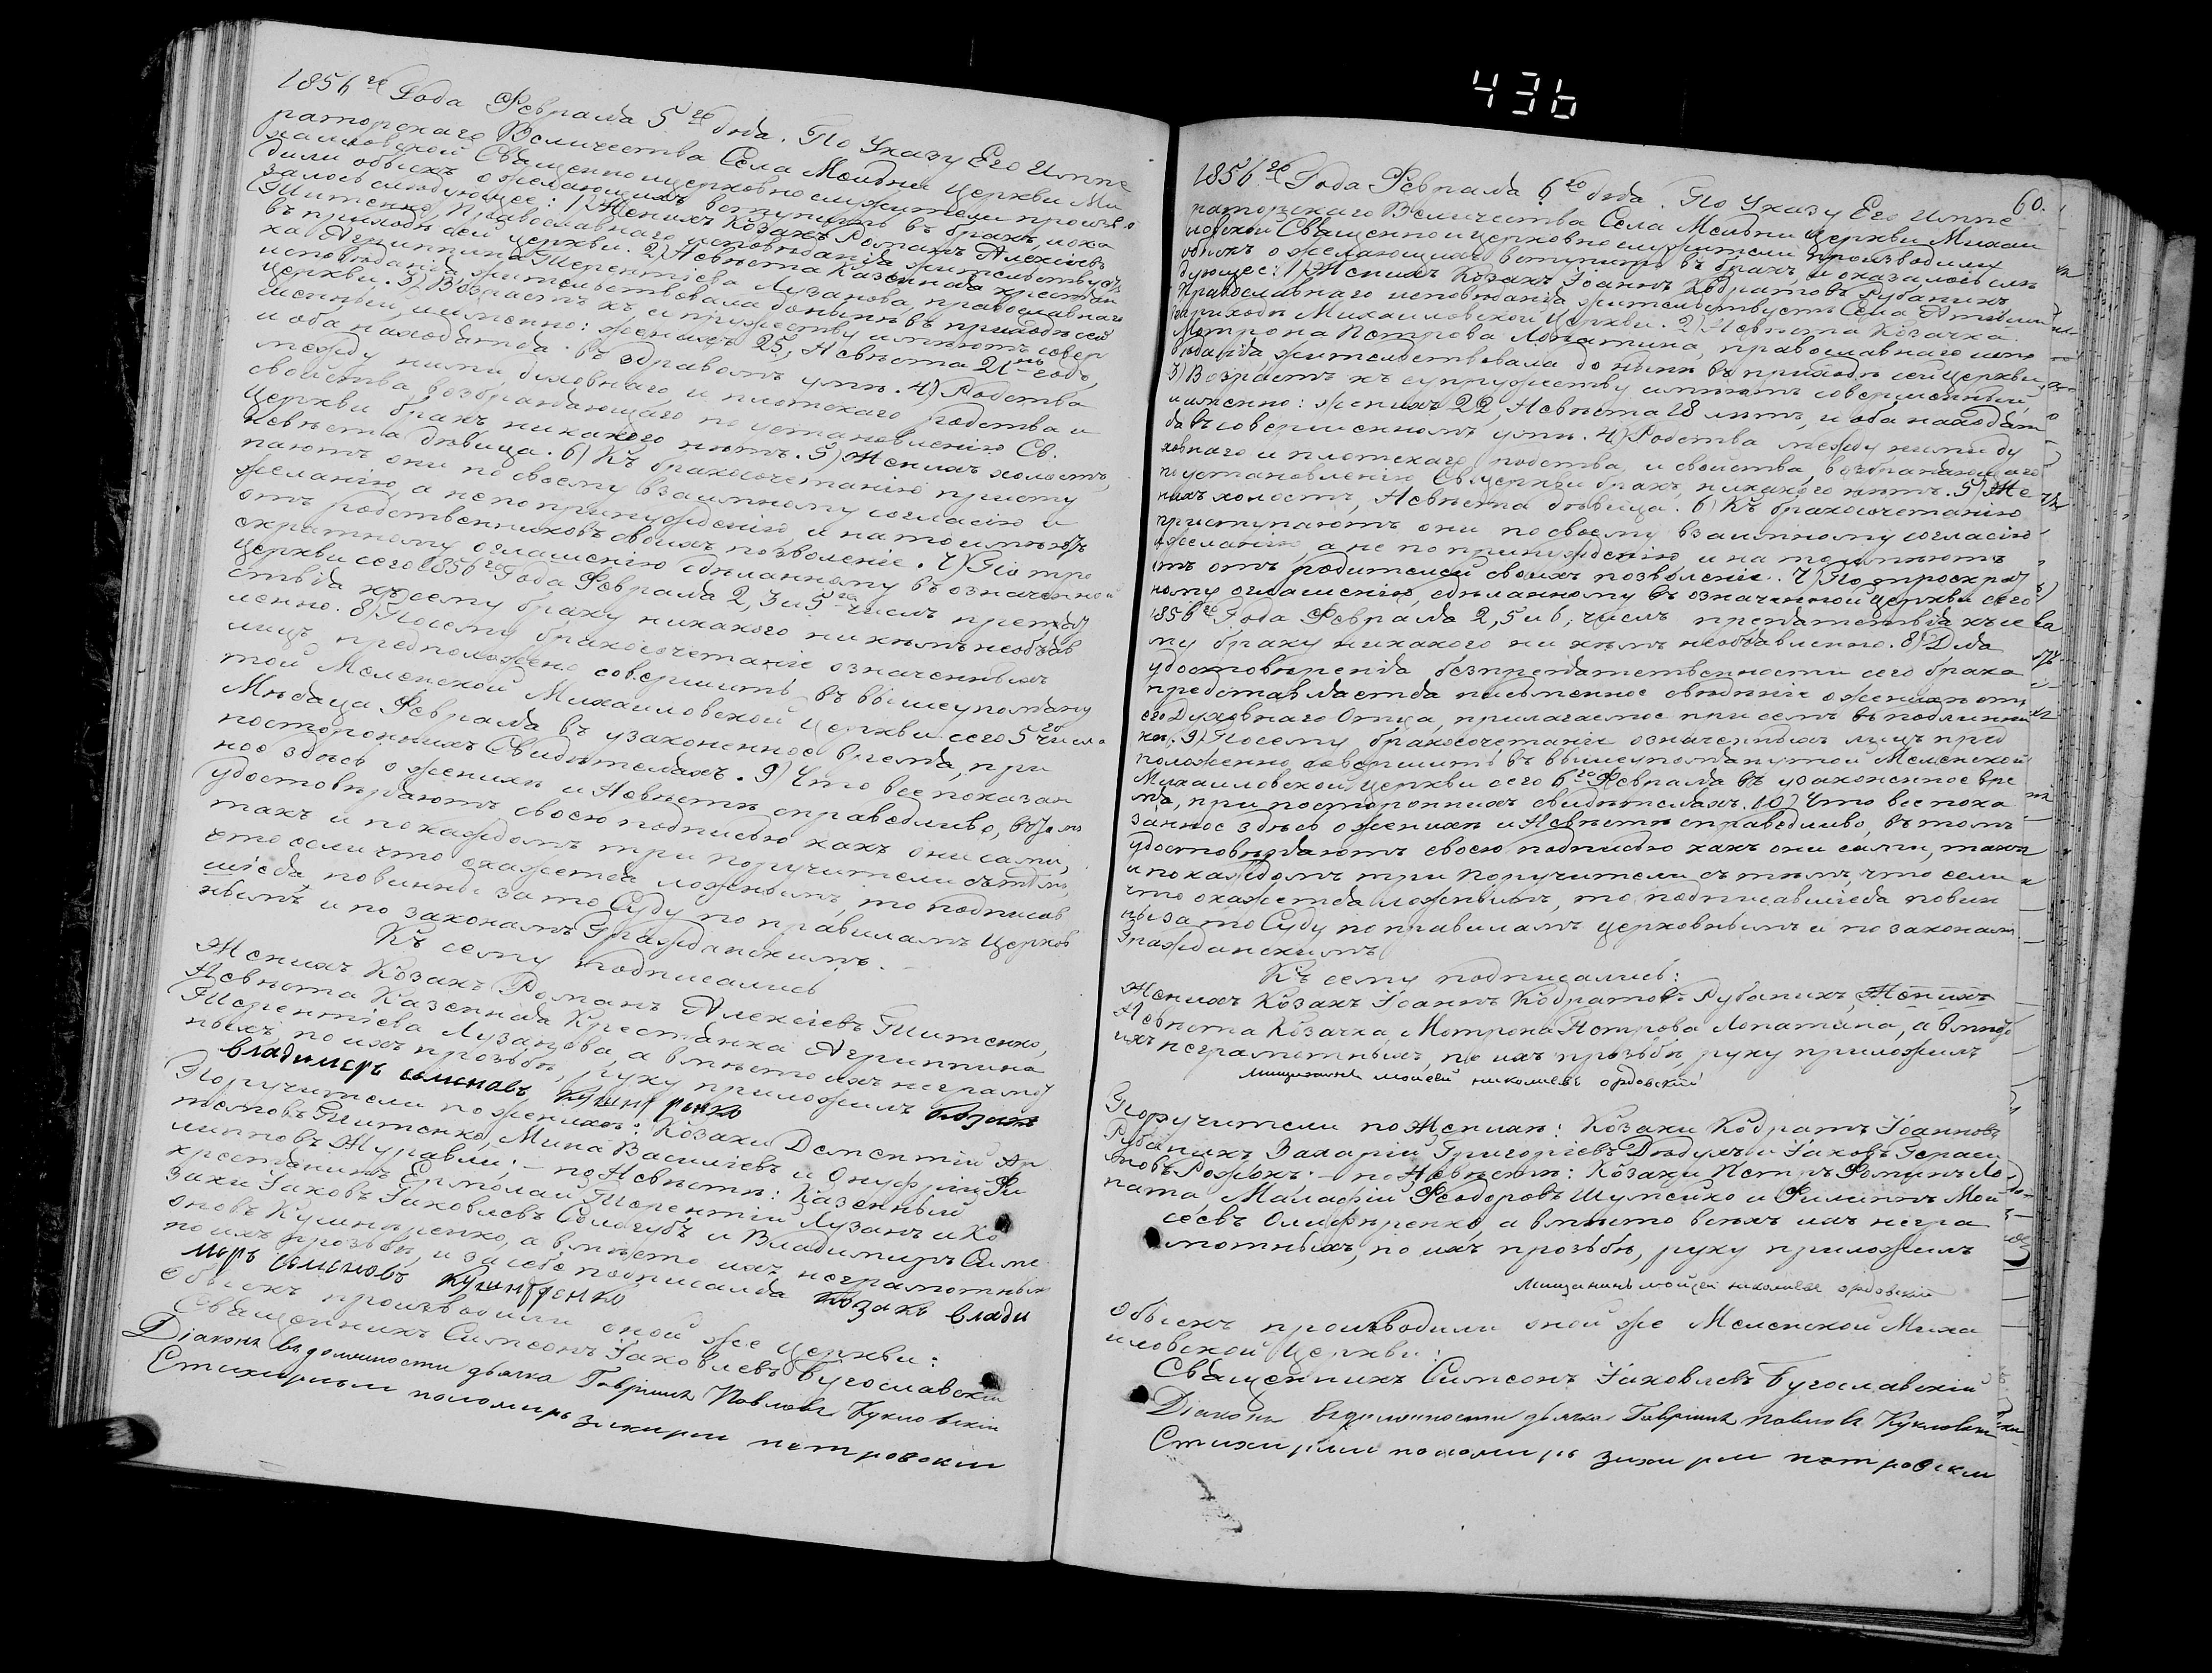 436
1856го Года Февраля 5го дня. По Указу Его Импе
раторскаго Величества Села Мельни Церкви Ми
хаиловской Священноицерковнослужители произво
дили обыскъ о желающихъ вступить въ бракъ, и ока
залось слѣдующее: 1) Женихъ Козакъ Романъ Алексіевъ
Титенко, Православнаго исповѣданія жительствуетъ
въ приходѣ сей Церкви. 2) Невѣста Казенная крестьян
ка Агриппина Терентіева Лузанова, православнаго
исповѣданія, жительствовала донынѣ въ приходѣ сей
Церкви. 3) Возрастъ къ супружеству имѣютъ совер
шенный, именно: женихъ 25, Невѣста 21 годъ,
и оба находятся въ здравомъ умѣ. 4) Родства
между ними духовнаго и плотскаго родства и
свойства, возбраняющаго по установленію Св.
Церкви бракъ никакого нѣтъ. 5) Женихъ холостъ,
невѣста дѣвица. 6) Къ бракосочетанію присту
паютъ они по своему взаимному согласію и
желанію, а не по принужденію, и на то имѣютъ
отъ родственниковъ своихъ позволеніе. 7) По тро
екратному оглашенію сдѣланному въ означенной
Церкви сего 1856го Года Февраля 2, 3 и 5го числъ препят
ствія къ сему браку никакого ни кѣмъ необъяв
ленно. 8) Посему бракосочетаніе означенныхъ
лицъ предположено совершить въ вышеупомяну
той Меленской Михаиловской Церкви сего 5го числа
Мѣсяца Февраля въ узаконенное время, при
постороннихъ Свидѣтеляхъ. 9) Что все показан
ное здѣсь о женихѣ и Невѣстѣ справедливо, въ томъ
удостовѣряютъ своею подписью какъ они сами,
такъ и по каждомъ три поручители съ тѣмъ,
что если что окажется ложнымъ, то подписав
шіеся повинны за то Суду по правиламъ Церков
нымъ и по законамъ Гражданскимъ.
Къ сему подписались
Женихъ Козакъ Романъ Алексіевъ Титенко,
Невѣста Казенная Крестьянка Агриппина
Терентіева Лузанова, а вмѣсто ихъ неграмот
ныхъ, по ихъ прозьбѣ, руку приложилъ козакъ
владимеръ семеновъ кушнеренко
Поручители по женихѣ: Козаки Дементій Ар
темовъ Титенко, Мина Василіевъ и Онуфрій Фи
липповъ Журавли; – по Невѣстѣ: Казенный
крестьянинъ Ермолай Терентій Лузанъ и Ко
заки Іаковъ Іаковлевъ Сологубъ и Владимиръ Симе
оновъ Кушнѣренко, а вмѣсто ихъ неграмотныхъ
по ихъ прозьбѣ, и за себе подписался козакъ влади
меръ семеновъ кушнеренко
Обыскъ производили оной же Церкви:
Священникъ Симеонъ Іаковлевъ Бугославскій
Діаконъ въ должности дьячка Гавріилъ Павловъ Куклинскій
Стихарный пономарь захарій петровскій
60.
1856го Года Февраля 6го дня. По Указу Его Импе
раторскаго Величества Села Мельни Церкви Михаи
ловской Священноицерковнослужители производили
обыскъ о желающихъ вступить въ бракъ, и оказалось слѣ
дующее: 1) Женихъ Козакъ Іоаннъ Кодратовъ Рубаникъ
Православнаго исповѣданія жительствуетъ Села
приходѣ Михаиловской Церкви. 2) Невѣста Козачка
Мотрона Петрова Лопатина, православнаго испо
вѣданія жительствовала донынѣ въ приходѣ сей Церкви.
3) Возрастъ къ супружеству имѣютъ совершенный,
именно: женихъ 22, Невѣста 18 лѣтъ, и оба находят
ся въ совершенномъ умѣ. 4) Родства между ними ду
ховнаго и плотскаго родства, и свойства, возбраняющаго
по установленію Св. Церкви бракъ, никакого нѣтъ. 5) Же
нихъ холостъ, Невѣста дѣвица. 6) Къ бракосочетанію
приступаютъ они по своему взаимному согласію
желанію, а не по принужденію, и на то имѣютъ
отъ родителей своихъ позволеніе. 7) По троекрат
ному оглашенію, сдѣланному въ означенной Церкви сего
1856го Года Февраля 2, 5 и 6, числъ препятствія къ се
му браку никакого ни кѣмъ необъявленно. 8) Для
удостовѣренія безпрепятственности сего брака
представляется письменное свѣдѣніе о женихѣ отъ
его Духовнаго Отца, прилагаемое при семъ въ подлинни
кѣ. 9) Посему бракосочетаніе означенныхъ лицъ пред
положенно совершить въ вышеупомянутой Меленской
Михаиловской Церкви сего 6го Февраля въ узаконенное вре
мя, при постороннихъ свидѣтеляхъ. 10) Что все пока
занное здѣсь о женихѣ и Невѣстѣ справедливо, въ томъ
удостовѣряютъ своею подписью какъ они сами, такъ
и по каждомъ три поручители съ тѣмъ, что если
что окажется ложнымъ, то подписавшіеся повин
ны за то Суду по правиламъ церковнымъ и по законамъ
Гражданскимъ.
Къ сему подписались:
Женихъ Козакъ Іоаннъ Кодратовъ Рубаникъ, Женихъ
Невѣста Козачка, Мотрона Петрова Лопатина, а вмѣсто
ихъ неграмотныхъ, по ихъ прозьбѣ, руку приложилъ
мищанинъ мойсей николаевъ ордовскій
Поручители по Женихѣ: Козаки Кодратъ Іоанновъ
Рубаникъ Захарій Григоріевъ Дюдикъ и Іаковъ Гераси
мовъ Рожокъ; – по Невѣстѣ: Козаки Петръ Фоминъ Ло
пата, Малафій Феодоровъ Шумейко и Филиппъ Мои
сеевъ Олифиренко, а вмѣсто всѣхъ ихъ негра
мотныхъ, по ихъ прозьбѣ, руку приложилъ
мищанинъ мойсей николаевъ ордовскій
Обыскъ производили оной же Меленской Миха
иловской Церкви:
Священникъ Симеонъ Іаковлевъ Бугославскій
Діаконъ въ должности дьячка Гавріилъ павловъ
Стихарный пономарь захарій петровскій